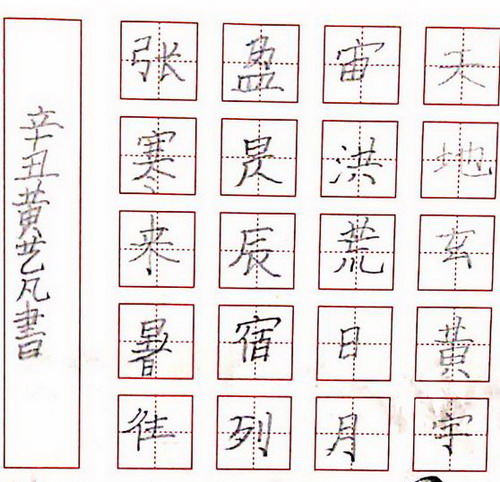 天地玄黄宇
宙洪荒日月
盈昃辰宿列
张寒来暑往
辛丑黄艺凡書